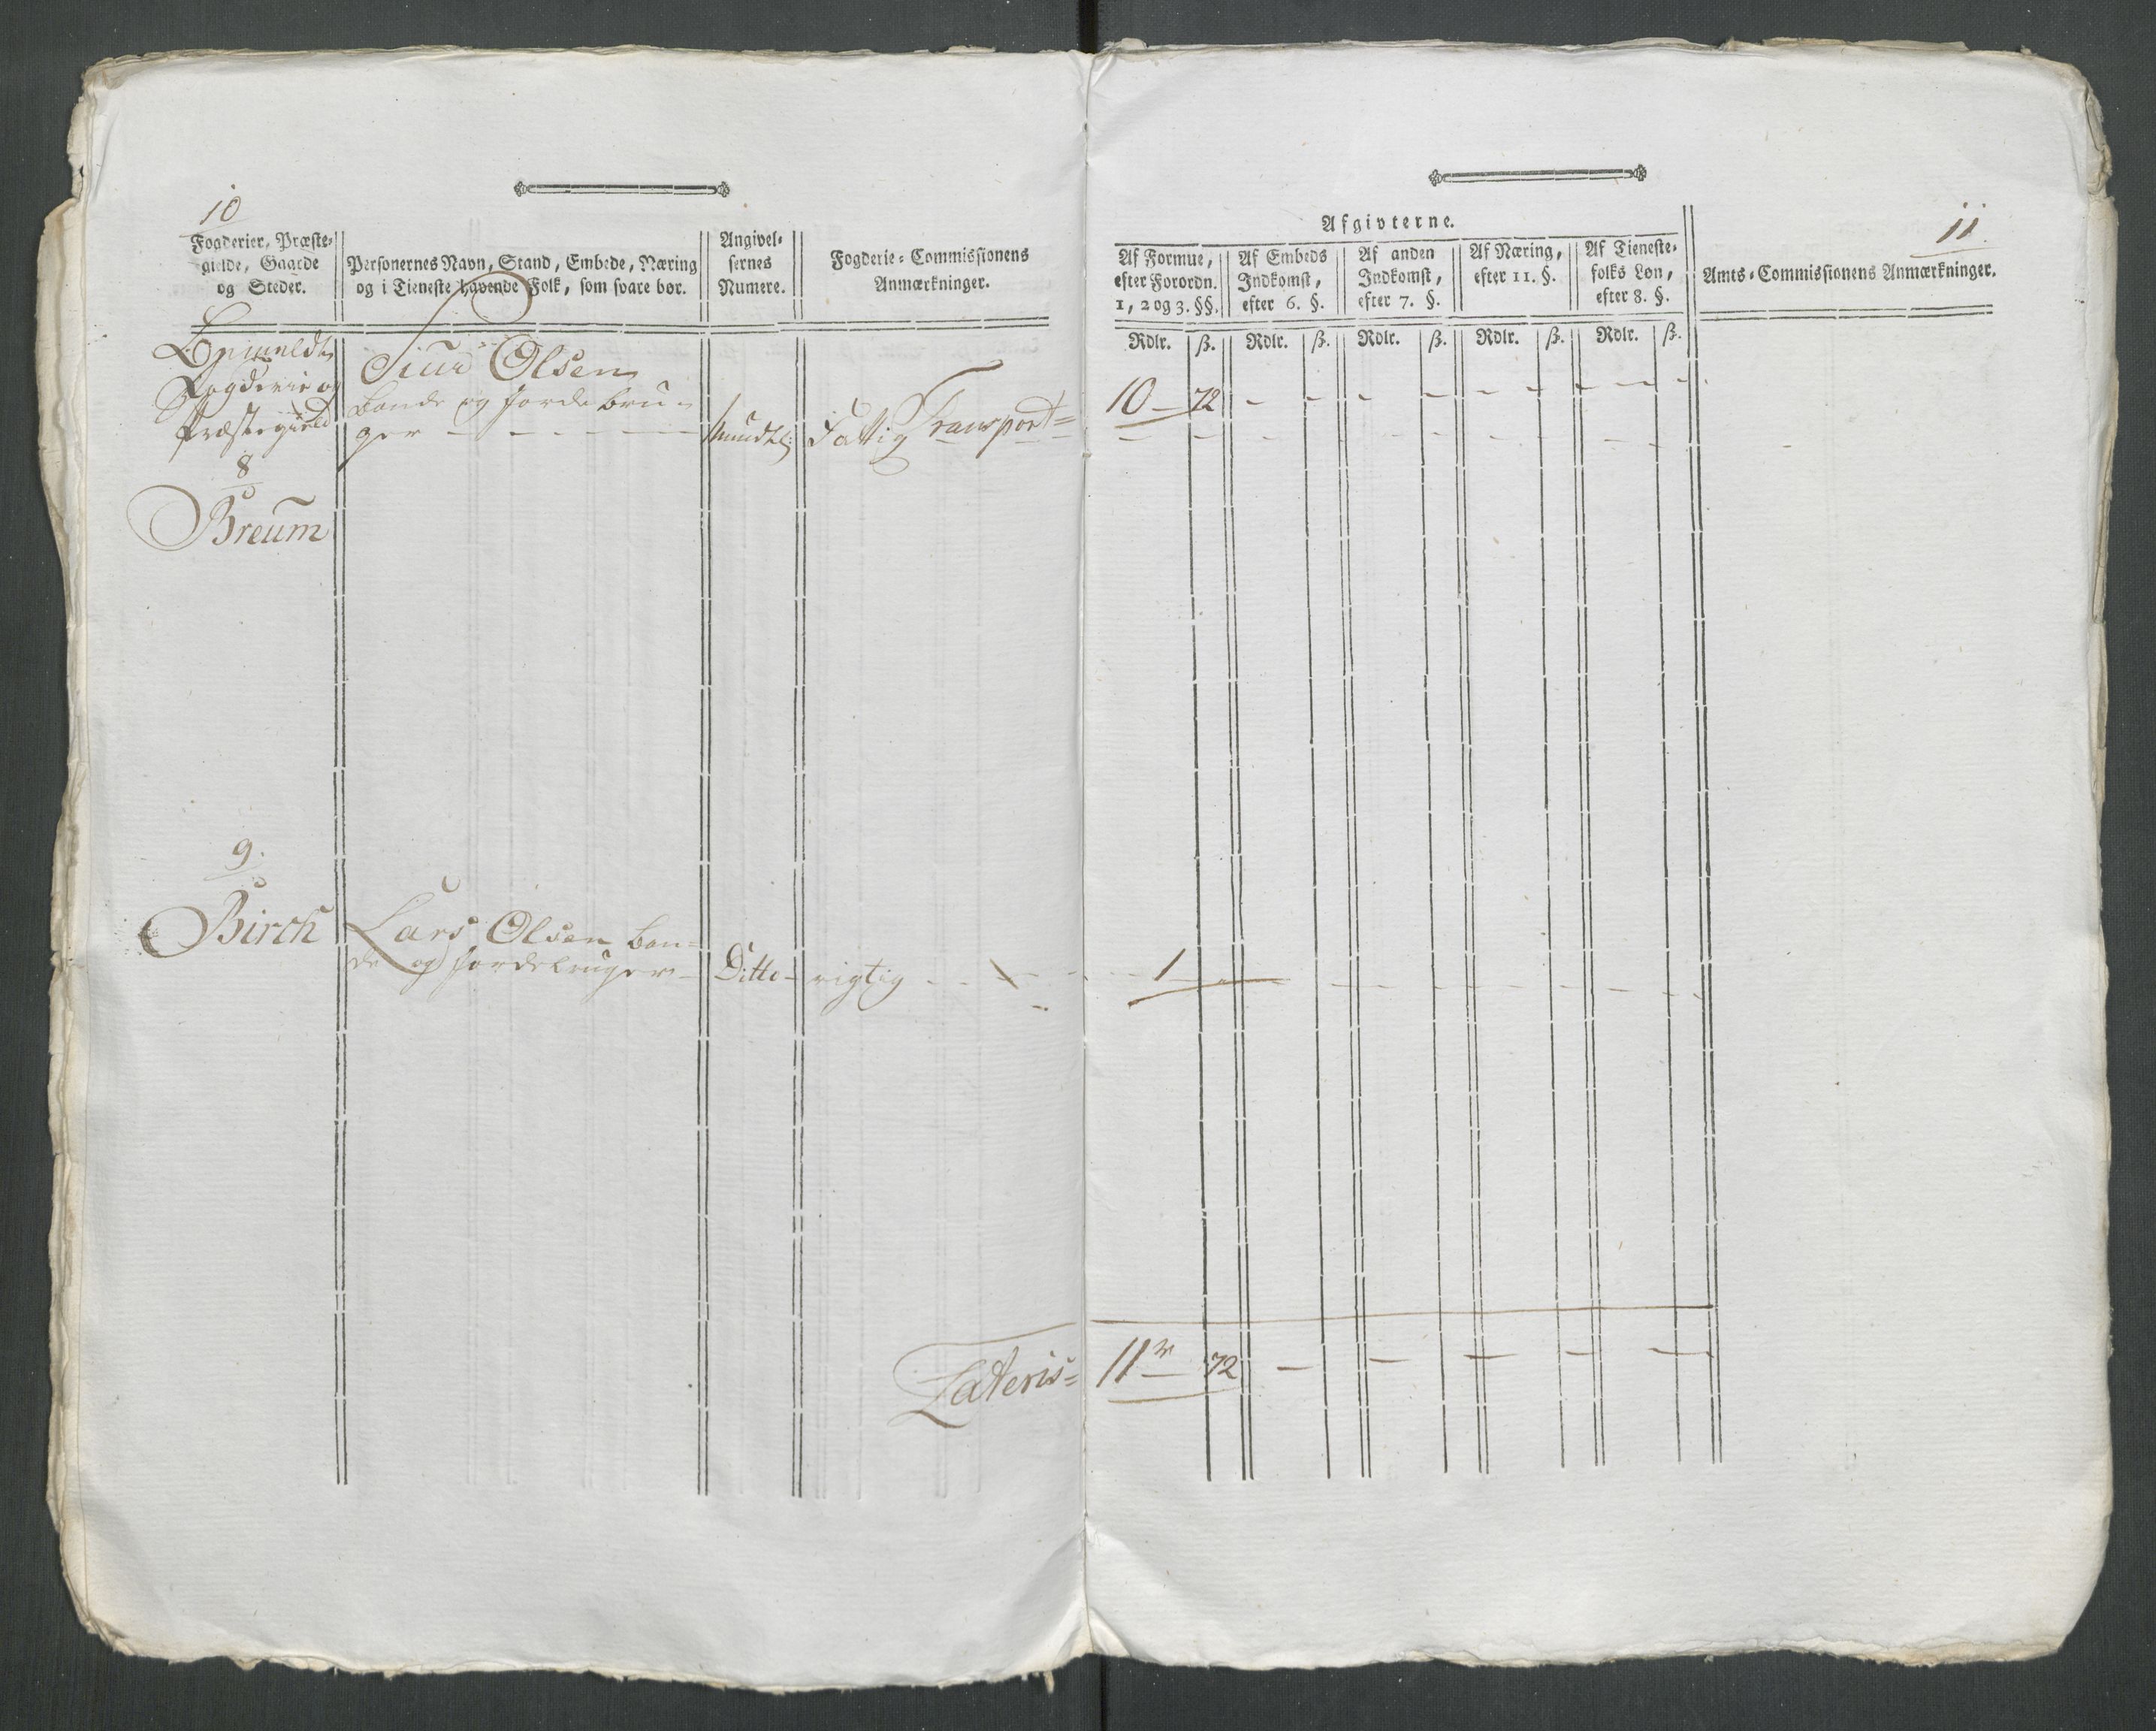 10
Fogderier, Præste-
gielde, Gaarde
og Steder.
Personernes Navn, Stand, Embede, Næring
og i Tieneste havende Folk, som svare bør.
Angivel-
sernes
Numere.
Fogderie-Commissionens
Anmærkninger.
Fogderie og
Præstegield
8
Breum
Siur Olsen
Bonde og Jordebru-
ger - - - -
mundtl:
Fattig
Transport=
9.
Birch
Lars Olsen Bon-
de og Jordebruger -
Ditto -
rigtig - -
Lateris=
11.
Afgivterne.
Af Formue,
efter Forordn.
1, 2 og 3. §§.
Af Embeds
Indkomst,
efter 6. §.
Af anden
Indkomst,
efter 7. §.
Af Næring,
efter 11. §.
Af Tieneste-
folks Løn,
efter 8. §.
Amts-Commissionens Anmærkninger.
Rdlr. ß. Rdlr. ß. Rdlr. ß. Rdlr. ß. Rdlr. ß.
10 - 72 - - - - - - - -
1 - - - - - - - -
11 72 - - - - -